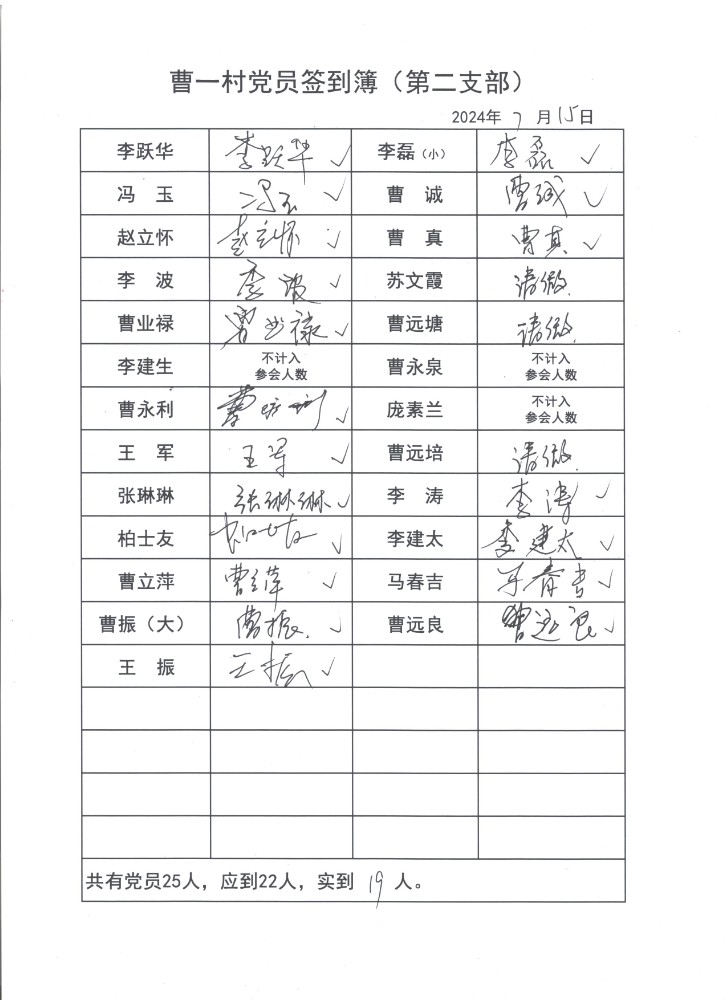 曹一村党员签到簿（第二支部）
2024年 7 月 15日
李跃华 李跃华 ✓ 李磊（小） 李磊 ✓
冯 玉 冯玉 ✓ 曹 诚 曹诚 ✓
赵立怀 赵立怀 ✓ 曹 真 曹真 ✓
李 波 李波 ✓ 苏文霞 请假
曹业禄 曹业禄 ✓ 曹远塘 请假
李建生 不计入 曹永泉 不计入
参会人数 参会人数
曹永利 曹永利 ✓ 庞素兰 不计入
参会人数
王 军 王军 ✓ 曹远培 请假
张琳琳 张琳琳 ✓ 李 涛 李涛 ✓
柏士友 柏士友 ✓ 李建太 李建太 ✓
曹立萍 曹立萍 ✓ 马春吉 马春吉 ✓
曹振（大） 曹振 ✓ 曹远良 曹远良 ✓
王 振 王振 ✓
共有党员25人，应到22人，实到 19 人。